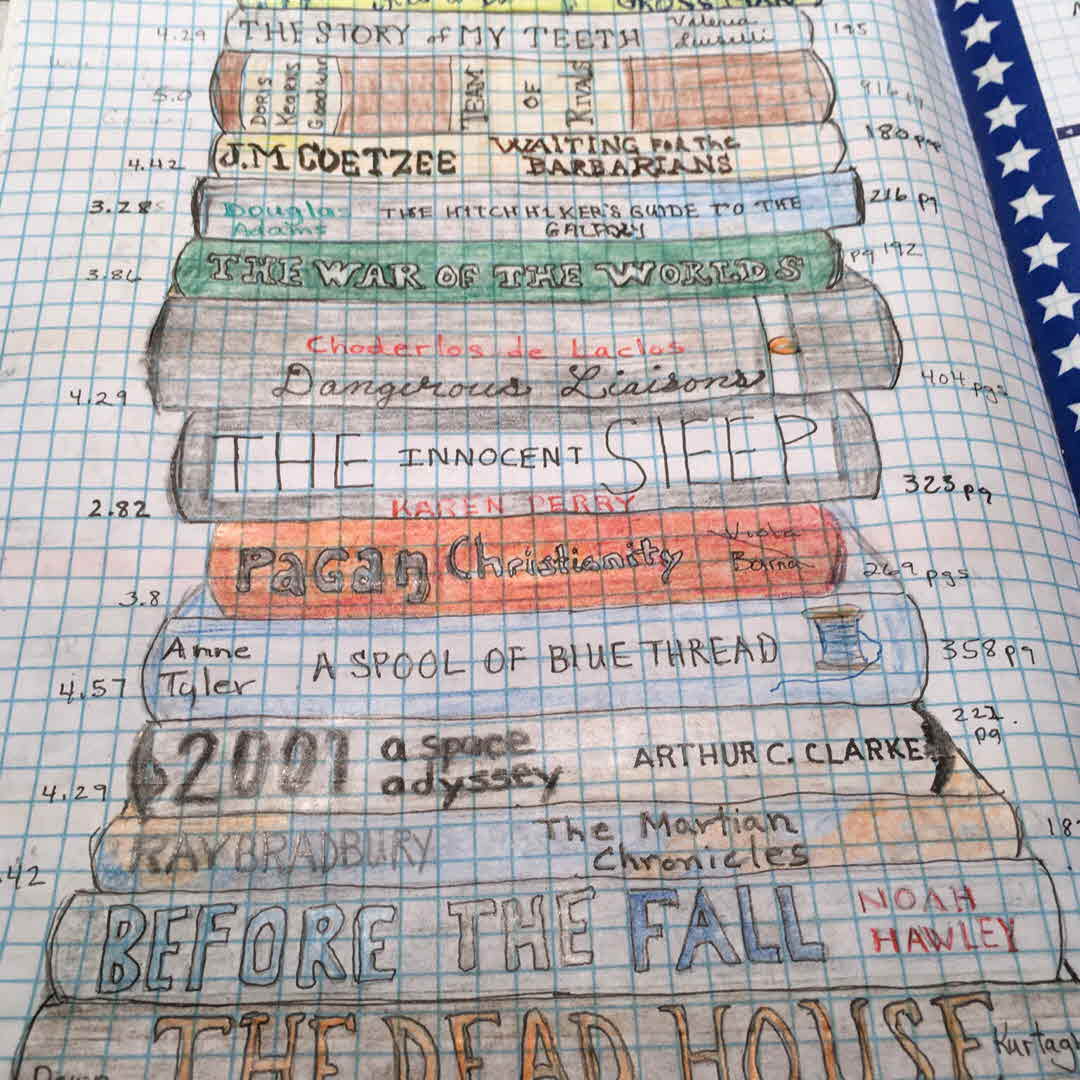 GROSSMAN
4.29 THE STORY of MY TEETH Valeria Luiselli 195
5.0 DORIS Kearns Goodwin TEAM OF RIVALS 916
4.42 J.M COETZEE WAITING FOR The BARBARIANS 180
3.28 Douglas Adams THE HITCHHIKER'S GUIDE TO THE GALAXY 216 pg
3.86 THE WAR OF THE WORLDS pg 192
Choderlos de Laclos
4.29 Dangerous Liaisons 404 pgs
THE INNOCENT SLEEP
2.82 KAREN PERRY 323 pg
3.8 PAGAN Christianity Viola Barna 269 pgs
4.57 Anne Tyler A SPOOL OF BLUE THREAD 358 pg
4.29 2001 a space adyssey ARTHUR C. CLARKE 221. pg
42 RAY BRADBURY The Martian Chronicles 18
BEFORE THE FALL NOAH HAWLEY
THE DEAD HOUSE Kurtag
Dawn